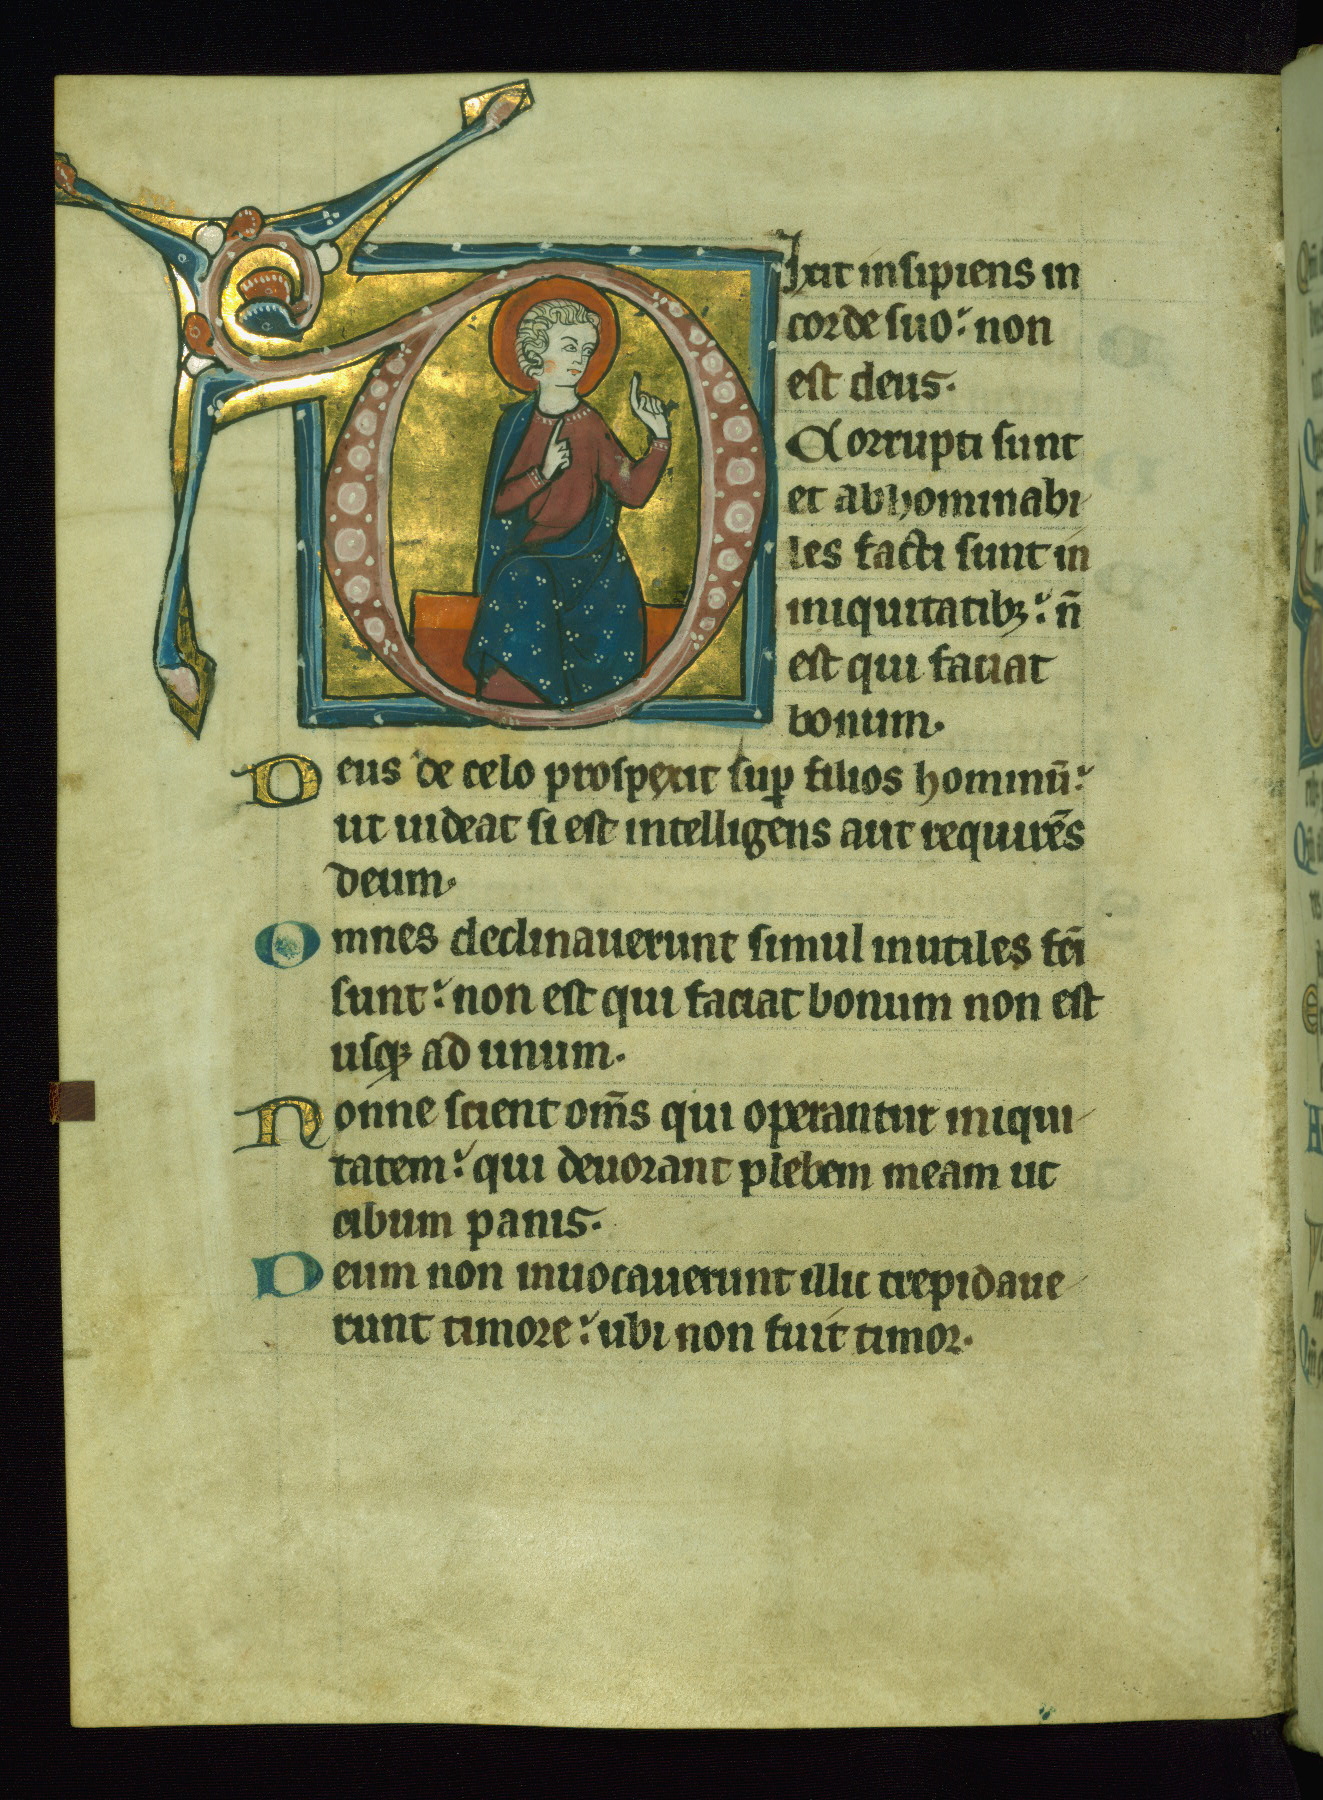 Dixit insipiens in
corde suo: non
est deus.
Corrupti sunt
et abhominabi
les facti sunt in
iniquitatibꝫ: n̄
est qui faciat
bonum.
Deus de celo prospexit sup̱ filios hominū:
ut uideat si est intelligens aut requirēs
deum.
Omnes declinauerunt simul inutiles fc̄i
sunt: non est qui faciat bonum non est
usqꝫ ad unum.
Nonne scient om̄s qui operantur iniqui
tatem: qui deuorant plebem meam ut
cibum panis.
Deum non inuocauerunt illic trepidaue
runt timore: ubi non fuit timor.